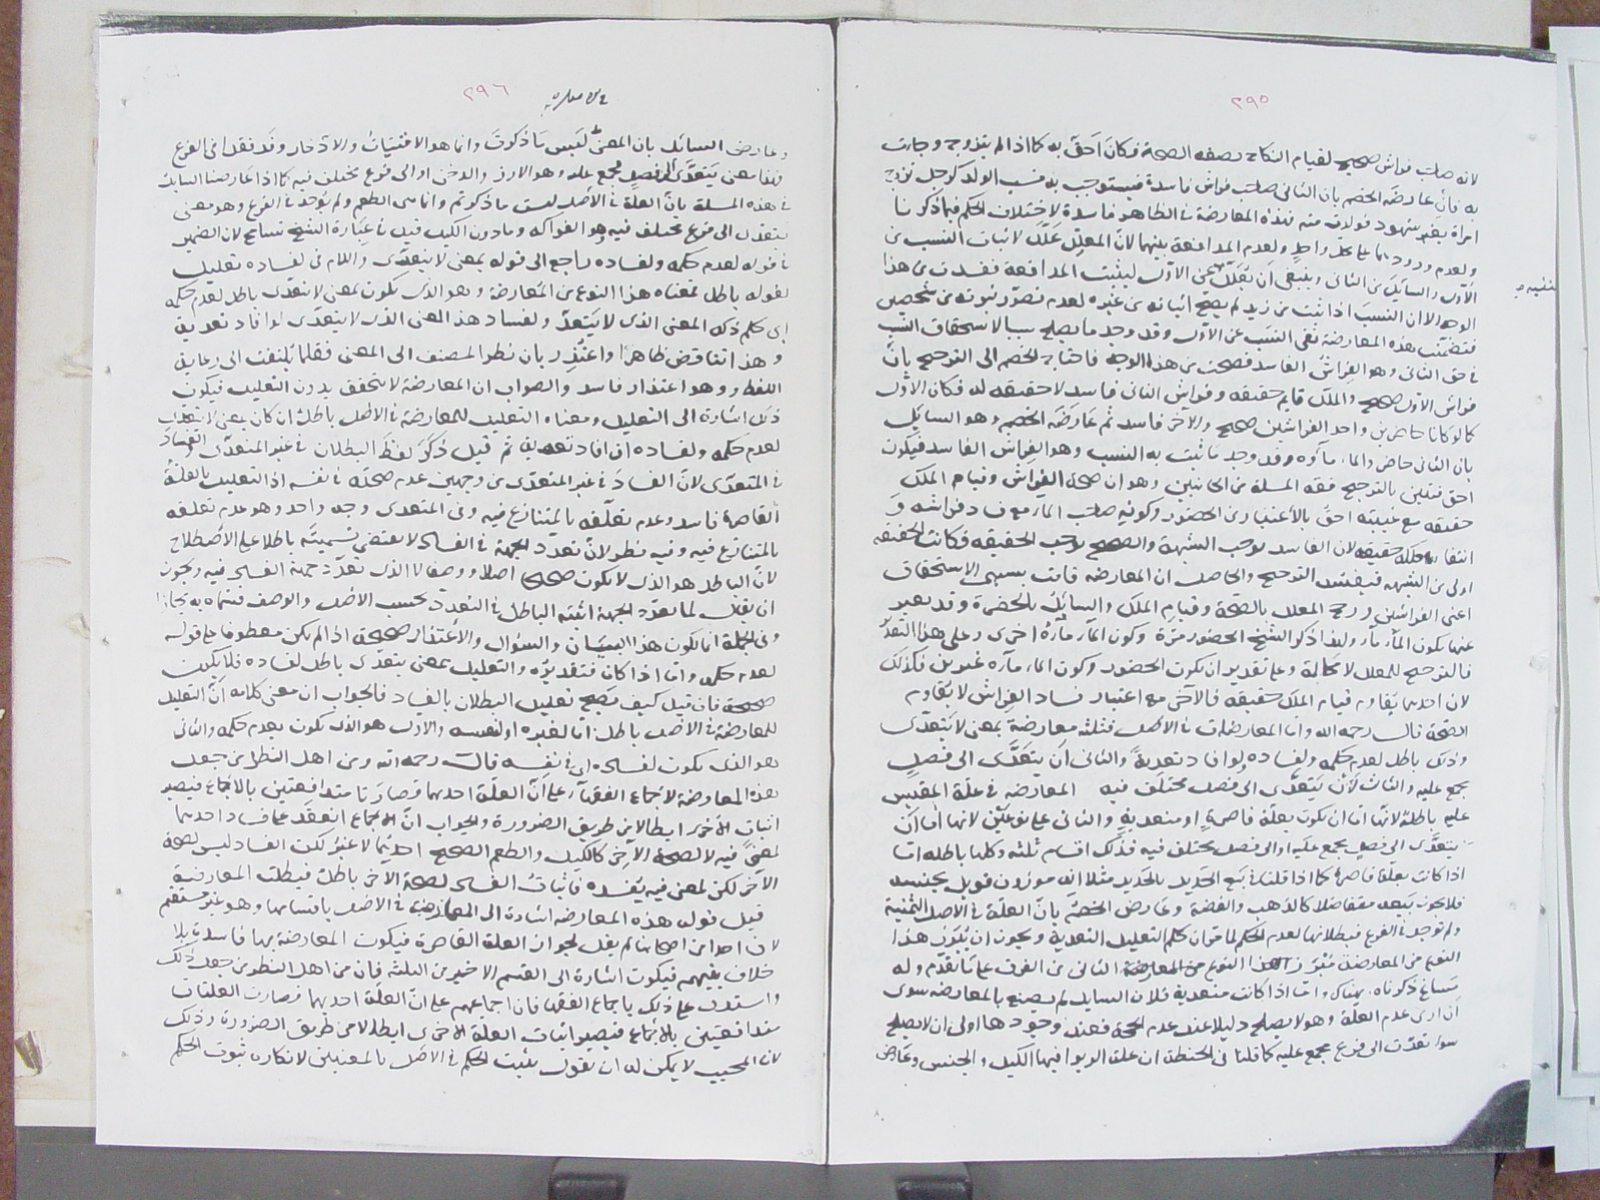 ٢٩٥
لانه صاحب فراش صحيح لقيام النكاح بصفة الصحة فكان احق به كما اذا لم يتزوج وجاءت
به فان عارضه الخصم بان الثاني صاحب فراش فاسد فيستوجب به نسب الولد كرجل تزوج
امراة بغير شهود فولدت منه فهذه المعارضة في الظاهر فاسدة لاختلاف الحكم فيما ذكرنا
ولعدم ورودهما على محل واحد ولعدم المدافعة بينهما لان المعلل علل لاثبات النسب من
الاول والسائل من الثاني وينبغي ان يعلل عن الاول ليثبت المدافعة ففسدت من هذا
الوجه الا ان النسب اذا ثبت من زيد لم يصح اثباته من غيره لعدم تصور ثبوته من شخصين
فتضمنت هذه المعارضة نفي النسب عن الاول وقد وجد ما يصلح سببا لاستحقاق النسب
في حق الثاني وهو الفراش الفاسد فصحت من هذا الوجه فاحتاج الخصم الى الترجيح بان
فراش الاول صحيح والملك قايم حقيقة وفراش الثاني فاسد لا حقيقة له فكان الاول
كما لو كانا حاضرين واحد الفراشين صحيح والاخر فاسد ثم عارضه الخصم وهو السايل
بان الثاني حاضر والماء ماؤه وقد وجد ما ثبت به النسب وهو الفراش الفاسد فيكون
احق فتبين بالترجيح فقه المسئلة من الجانبين وهو ان صحة الفراش وقيام الملك
حقيقة مع غيبته احق بالاعتبار من الحضور وكونه صاحب الماء مع فساد فراشه و
انتفاء ملكه حقيقة لان الفاسد يوجب الشبهة والصحيح يوجب الحقيقة فكانت الحقيقة
اولى من الشبهة فيفسد الترجيح والحاصل ان المعارضة قامت بسببي الاستحقاق
اعني الفراشين ورجح المعلل بالصحة وقيام الملك والسايل بالحضرة وقد يعبر
عنها بكون الماء ماؤه ولهذا ذكر الشيخ الحضور مرة وكون الماء ماؤه اخرى وعلى هذا التقدير
فالترجيح للمعلل لا محالة وعلى تقدير ان يكون الحضور وكون الماء ماؤه غيرين فكذلك
لان احديهما يقاوم قيام الملك حقيقة فالاخرى مع اعتبار فساد الفراش لا يقاوم
الصحة قال رحمه الله واما المعارضات في الاصل فثلثة معارضة بمعنى لا يتعدى
وذلك باطل لعدم حكمه ولفساده لو افاد تعدية والثاني ان يتعدى الى فصل
مجمع عليه والثالث ان يتعدى الى فصل مختلف فيه المعارضة في علة المقيس
عليه باطلة لانها اما ان يكون بعلة قاصرة او متعدية والثاني على نوعين لانها اما ان
يتعدى الى فصل مجمع عليه او الى فصل مختلف فيه فذلك اقسام ثلثة وكلها باطلة اما
اذا كانت بعلة قاصرة كما اذا قلنا في بيع الحديد بالحديد مثلا انه موزون قوبل بجنسه
فلا يجوز بيعه متفاضلا كالذهب والفضة وعارض الخصم بان العلة في الاصل الثمنية
ولم توجد في الفرع فبطلانها لعدم الحكم لما مر ان حكم التعليل التعدية ويجوز ان يكون هذا
النوع من المعارضة مفرزا هذا النوع من المعارضة الثاني من الفرق على ما تقدم وله
مساغ ذكرناه هناك واما اذا كانت متعدية فلان السايل لم يصنع بالمعارضة سوى
ان ارى عدم العلة وهو لا يصلح دليلا عند عدم الحجة فعند وجودها اولى ان لا يصلح
سواء تعدت الى فرع مجمع عليه كما قلنا في الحنطة ان علة الربوا فيها الكيل والجنس وعارض
٢٩٦
وعارض السائل بان المعنى ليس ما ذكرت وانما هو الاقتيات والادخار وقد فقد في الفرع
فهذا معنى يتعدى الى فصل مجمع عليه وهو الارز والدخن او الى فرع مختلف فيه كما اذا عارضنا السايل
في هذه المسئلة بان العلة في الاصل ليست ما ذكرتم وانما هي الطعم ولم يوجد في الفرع وهو معنى
يتعدى الى فرع مختلف فيه وهو الفواكه وما دون الكيل قيل في عبارة الشيخ تسامح لان الضمير
في قوله لعدم حكمه ولفساده راجع الى قوله بمعنى لا يتعدى واللام في لفساده تعليل
لقوله باطل فمعناه هذا النوع من المعارضة وهو الذي يكون بمعنى لا يتعدى باطل لعدم حكمه
اي حكم ذلك المعنى الذي لا يتعد ولفساد هذا المعنى الذي لا يتعدى لو افاد تعدية
وهذا تناقض ظاهرا واعتذر بان نظر المصنف الى المعنى فقلما يلتفت الى رعاية
اللفظ وهو اعتذار فاسد والصواب ان المعارضة لا يتحقق بدون التعليل فيكون
ذلك اشارة الى التعليل ومعناه التعليل للمعارضة في الاصل باطل ان كان بمعنى لا يتعدى
لعدم حكمه ولفساده ان افاد تعدية ثم قيل ذكر لفظ البطلان في غير المتعدى والفساد
في المتعدى لان الفساد في غير المتعدى من وجهين عدم صحته في نفسه اذ التعليل بالعلة
القاصرة فاسد وعدم تعلقه بالمتنازع فيه وفي المتعدى وجه واحد وهو عدم تعلقه
بالمتنازع فيه وفيه نظر لان تعدد الجهة في الفساد لا يقتضي تسميته باطلا على الاصطلاح
لان الباطل هو الذي لا يكون صحيحا اصلا ووصفا لا الذي تعدد جهة الفساد فيه ويجوز
ان يقال لما تعدد الجهة اشبه الباطل في التعدد بحسب الاصل والوصف فسماه به مجازا
وفي الجملة انما يكون هذا البيان والسؤال والاعتذار صحيحة اذا لم يكن معطوفا على قوله
لعدم حكمه واما اذا كان فتقديره والتعليل بمعنى يتعدى باطل لفساده فلا يكون
صحيحة فان قيل كيف يصح تعليل البطلان بالفساد فالجواب ان معنى كلامه ان التعليل
للمعارضة في الاصل باطل اما لغيره او لنفسه والاول هو الذي يكون بعدم حكمه والثاني
هو الذي يكون لفساده اي في نفسه قال رحمه الله ومن اهل النظر من جعل
هذه المعارضة لاجماع الفقهاء على ان العلة احديهما فصارتا متدافعتين بالاجماع فيصير
اثبات الاخرى ابطالا من طريق الضرورة والجواب ان الاجماع انعقد على فساد احديهما
لمعنى فيه لا لصحة الاخر كالكيل والطعم الصحيح احديهما لا غير لكن الفساد ليس لصحة
الاخر لكن لمعنى فيه يفسده فاثبات الفساد لصحة الاخر باطل فبطلت المعارضة
قيل قوله هذه المعارضة اشارة الى المعارضة في الاصل باقسامها وهو غير مستقيم
لان احدا من اصحابنا لم يقل بجواز العلة القاصرة فيكون المعارضة بها فاسدة بلا
خلاف بينهم فيكون اشارة الى القسم الاخيرين من الثلثة فان من اهل النظر من جعل ذلك
واستدل على ذلك باجماع الفقهاء فان اجماعهم على ان العلة احديهما فصارت العلتان
متدافعتين بالاجماع فيصير اثبات العلة الاخرى ابطالا من طريق الضرورة وذلك
لان المجيب لا يمكن له ان يقول يثبت الحكم في الاصل بالمعنيين لانكاره ثبوت الحكم